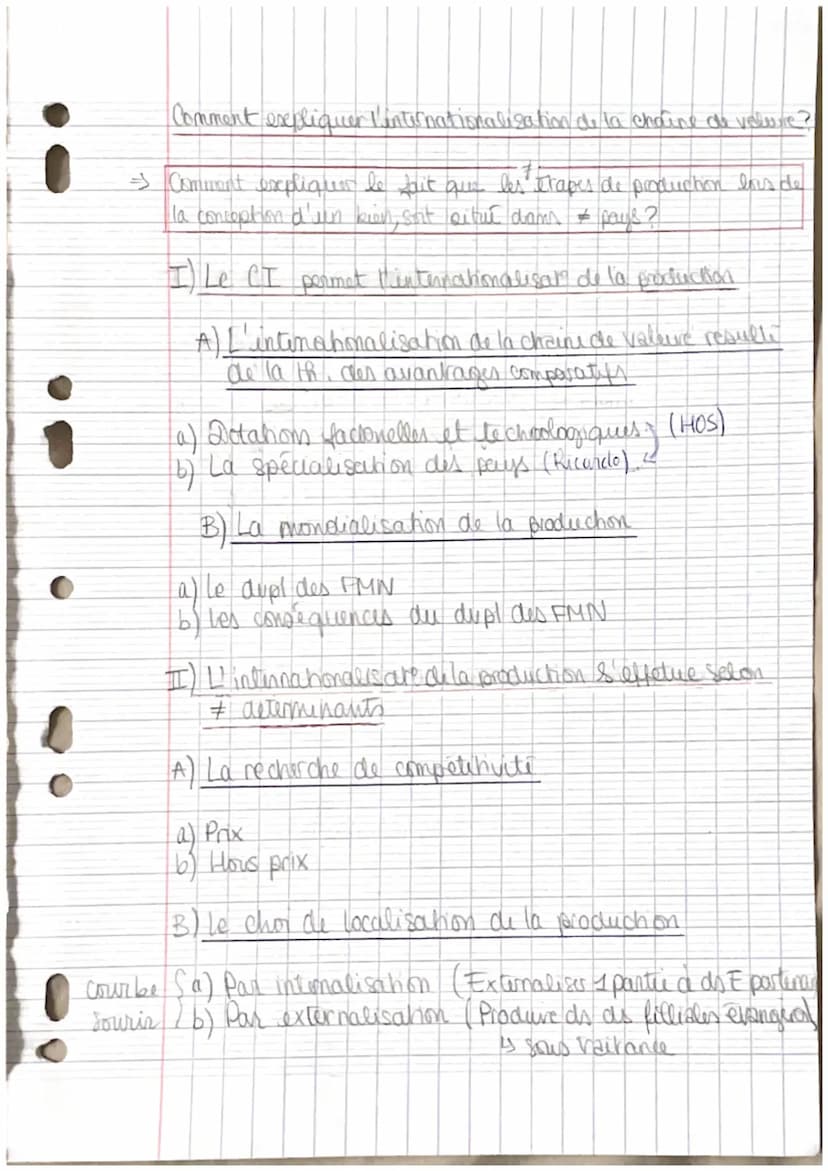 Comment expliquer l'internationalisation de la chaîne de valeure ?
⇒ Comment expliquer le fait que les ≠ étapes de production lors de
la conception d'un bien, soit situé dans ≠ pays ?
I) Le CI permet l'internationalisat° de la production
A) L'internationalisation de la chaine de valeure resulte
de la th. des avantrages comparatifs
a) Dotations factorielles et technologiques (HOS)
b) La spécialisation des pays (Ricardo)
B) La mondialisation de la production
a) le dvpl des FMN
b) Les conséquences du dvpl des FMN
II) L'internationalisat° de la production s'effetue selon
≠ determinants
A) La recherche de compétitivité
a) Prix
b) Hors prix
B) Le choi de localisation de la production
courbe a) Par internalisation (Externaliser 1 partie à ds E partenai
sourir b) Par externalisation (Produire ds ds filliales étrangères)
↳ sous